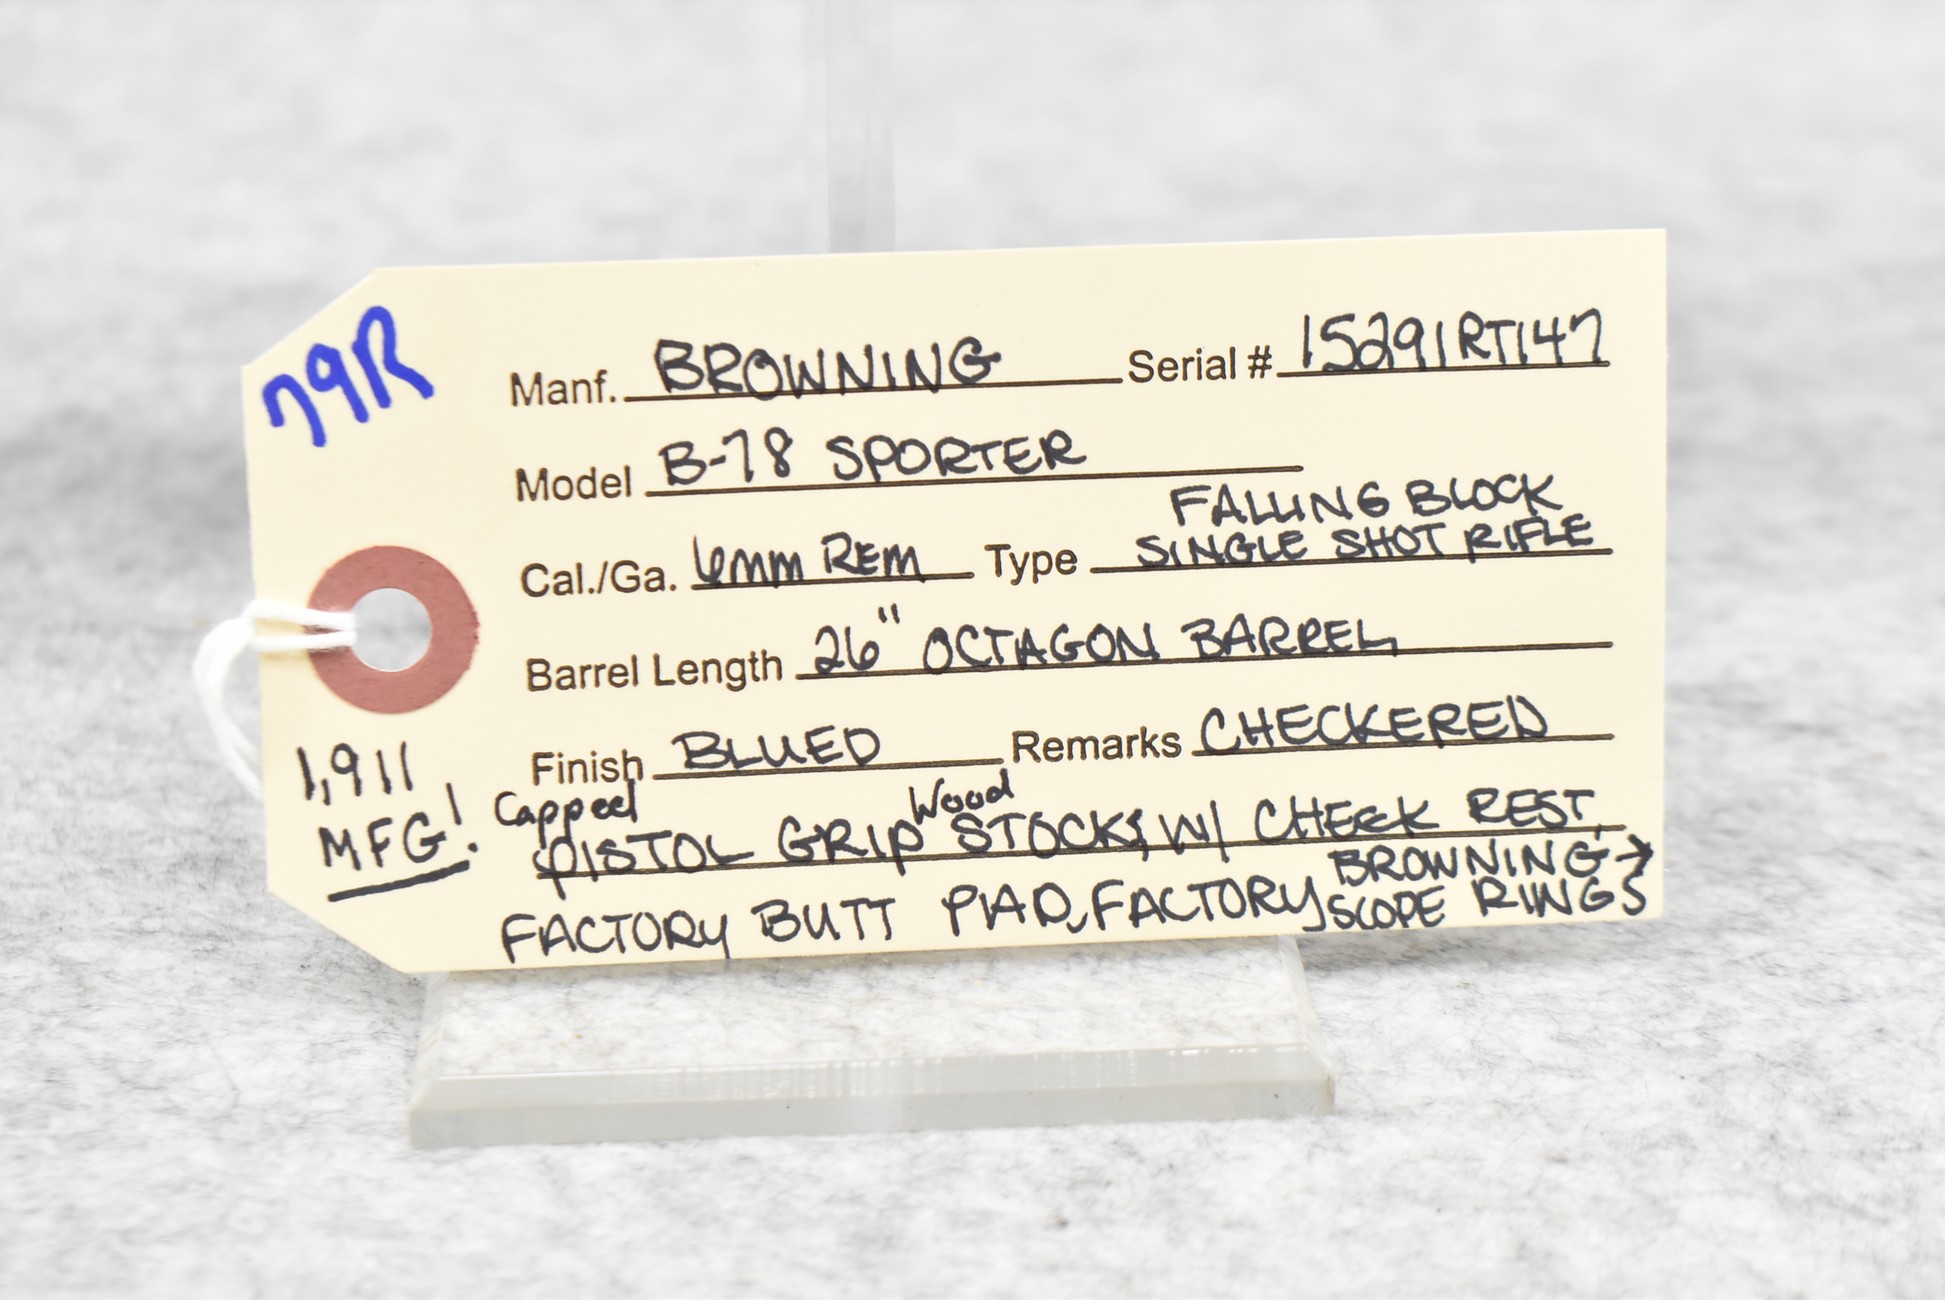 79R
Manf. BROWNING Serial # 15291RT147
Model B-78 SPORTER
Cal./Ga. 6mm REM Type FALLING BLOCK
SINGLE SHOT RIFLE
Barrel Length 26" OCTAGON BARREL
Finish BLUED Remarks CHECKERED
Capped PISTOL GRIP Wood STOCKS, W/ CHEEK REST,
FACTORY BUTT PAD, FACTORY BROWNING →
SCOPE RINGS
1,911
MFG!